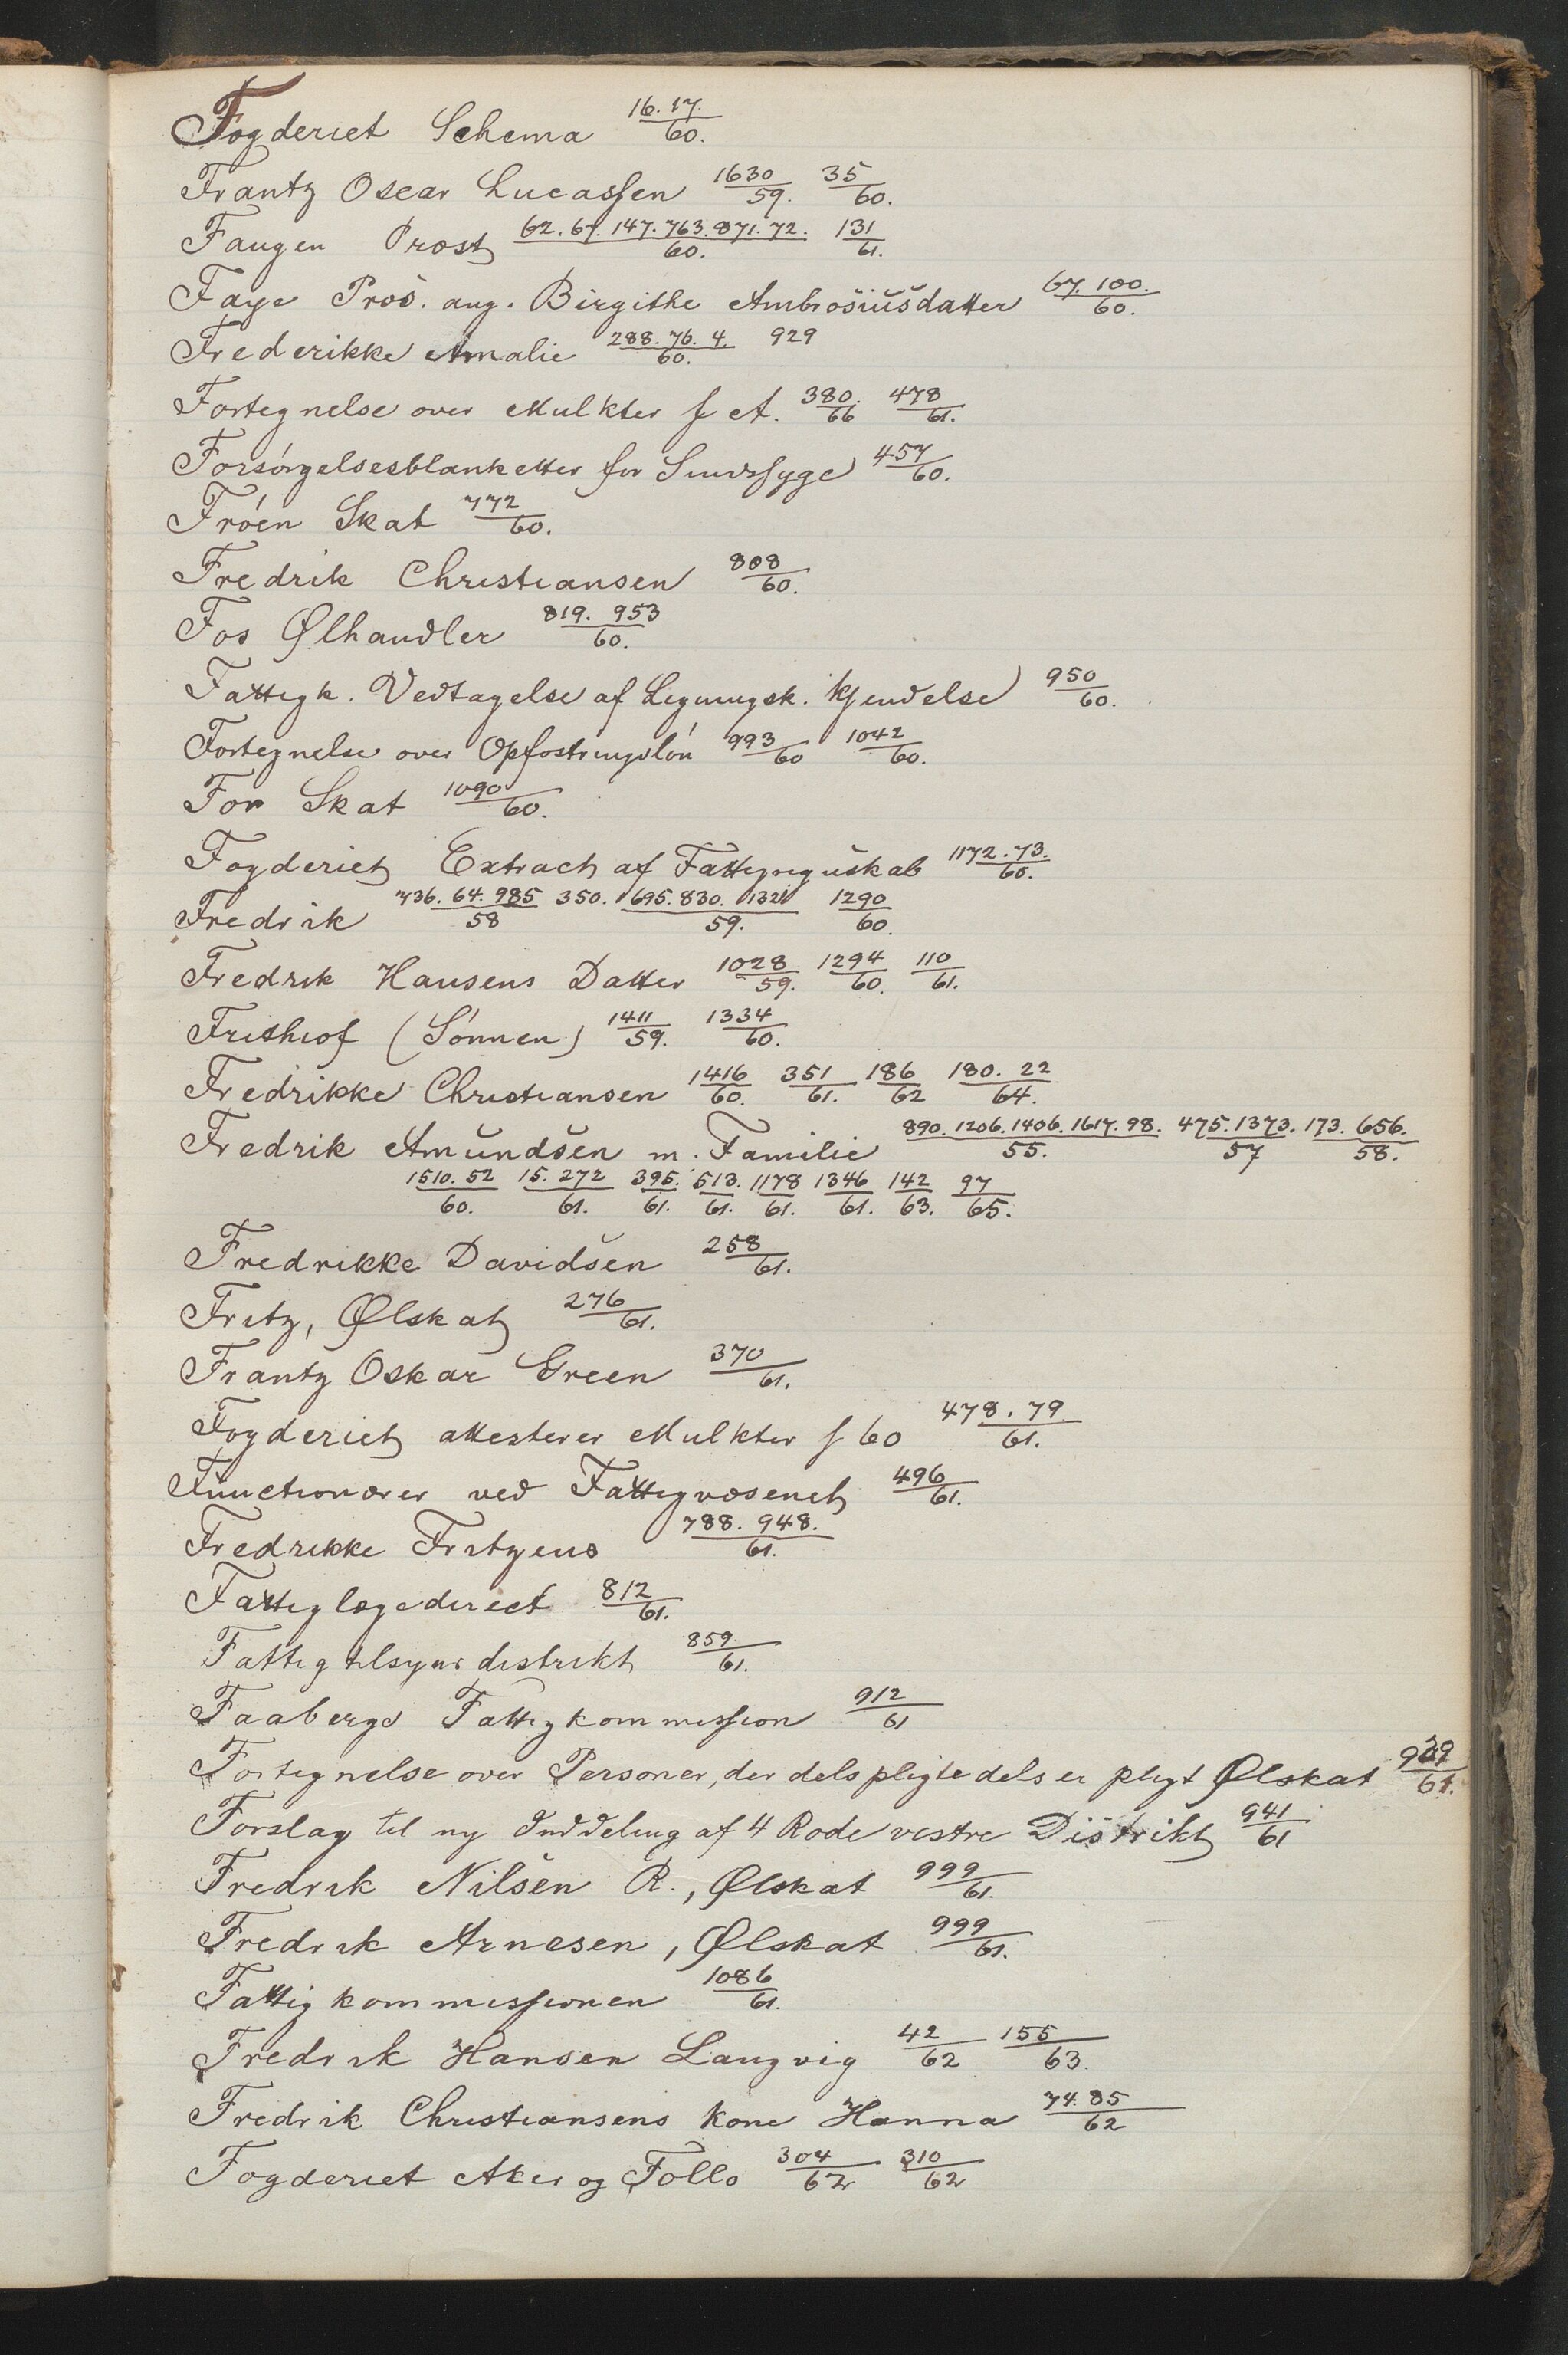 Fogderiet Schema 16.17./60.
Frantz Oscar Lucassen 1630/59. 35/60.
Faugen Prost 62.67.147.763.871.72./60. 131/61.
Faye Pros. ang. Birgithe Ambrosiusdatter 67.100./60.
Frederikke Amalie 288.76.4./60. 929
Fortegnelse over Mulkter f A. 380./66 478/61.
Forsörgelsesblanketter for Sindssyge 457/60.
Fróen Skat 772/60.
Fredrik Christiansen 808/60.
Fos Ølhandler 819. 953/60.
Fattigk. Vedtagelse af Ligningsk. Kjendelse 950/60.
Fortegnelse over Opfostringslón 993/60 1042/60.
For Skat 1090/60.
Fogderiet Extract af Fattigregnskab 1172.73./60.
Fredrik 736.64.985/58 350. 695.830.1321/59. 1290/60.
Fredrik Hansens Datter 1028/59. 1294/60. 110/61.
Frithiof (Sónnen) 1411/59. 1334/60.
Fredrikke Christiansen 1416/60. 351/61. 186/62 180. 22/64.
Fredrik Amundsen m. Familie 890.1206.1406.1617.98./55. 475.1373./57 173.656./58.
1510.52/60. 15.272/61. 395./61. 513./61. 1178/61. 1346/61. 142/63. 97/65.
Fredrikke Davidsen 258/61.
Fritz, Ølskat 276/61.
Frantz Oskar Green 370/61.
Fogderiet attesterer Mulkter f 60 478.79/61.
Functionærer ved Fattigvæsenet 496/61.
Fredrikke Fritzens 788. 948./61.
Fattiglægederiet 812/61.
Fattigtilsynsdistrikt 859/61.
Faabergs Fattigkommission 912/61
Fortegnelse over Personer, der dels pligte dels ei pligt Ølskat 939/61.
Forslag til ny Inddeling af 4 Rode vestre Distrikt 941/61
Fredrik Nilsen R., Ølskat 999/61.
Fredrik Arnesen, Ølskat 999/61.
Fattigkommissionen 1086/61.
Fredrik Hansen Langvig 42/62 155/63.
Fredrik Christiansens kone Hanna 74.85/62
Fogderiet Aker og Follo 304/62 310/62